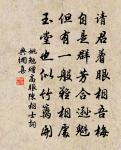 請君着眼相吾梅
自是羣芳合遜魁
但有一般難相處
玉堂也似竹籬開
姚勉贈高眼陳相士詞
與周喜